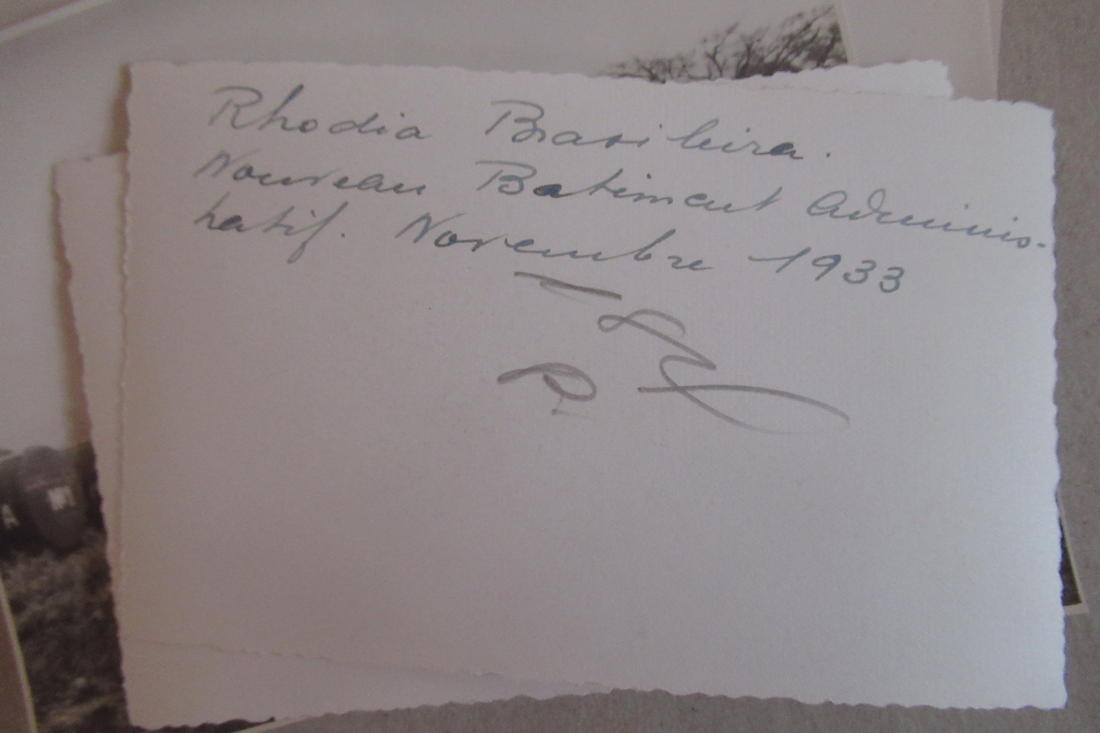 Rhodia Brasileira.
Nouveau Batiment Adminis-
tratif. Novembre 1933